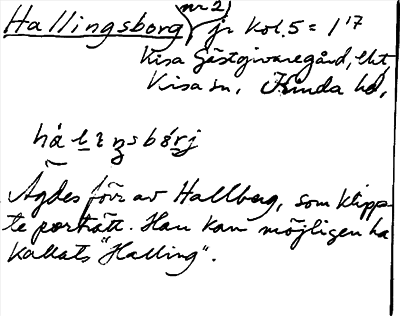 nr 2)
Hallingsborg, jr kol. 5 = 1¹⁷
Kisa Gästgivaregård, lht,
Kisa sn, Kinda hd,
Ägdes förr av Hallberg, som klipp-
te porträtt. Han kan möjligen ha
kallats "Halling".